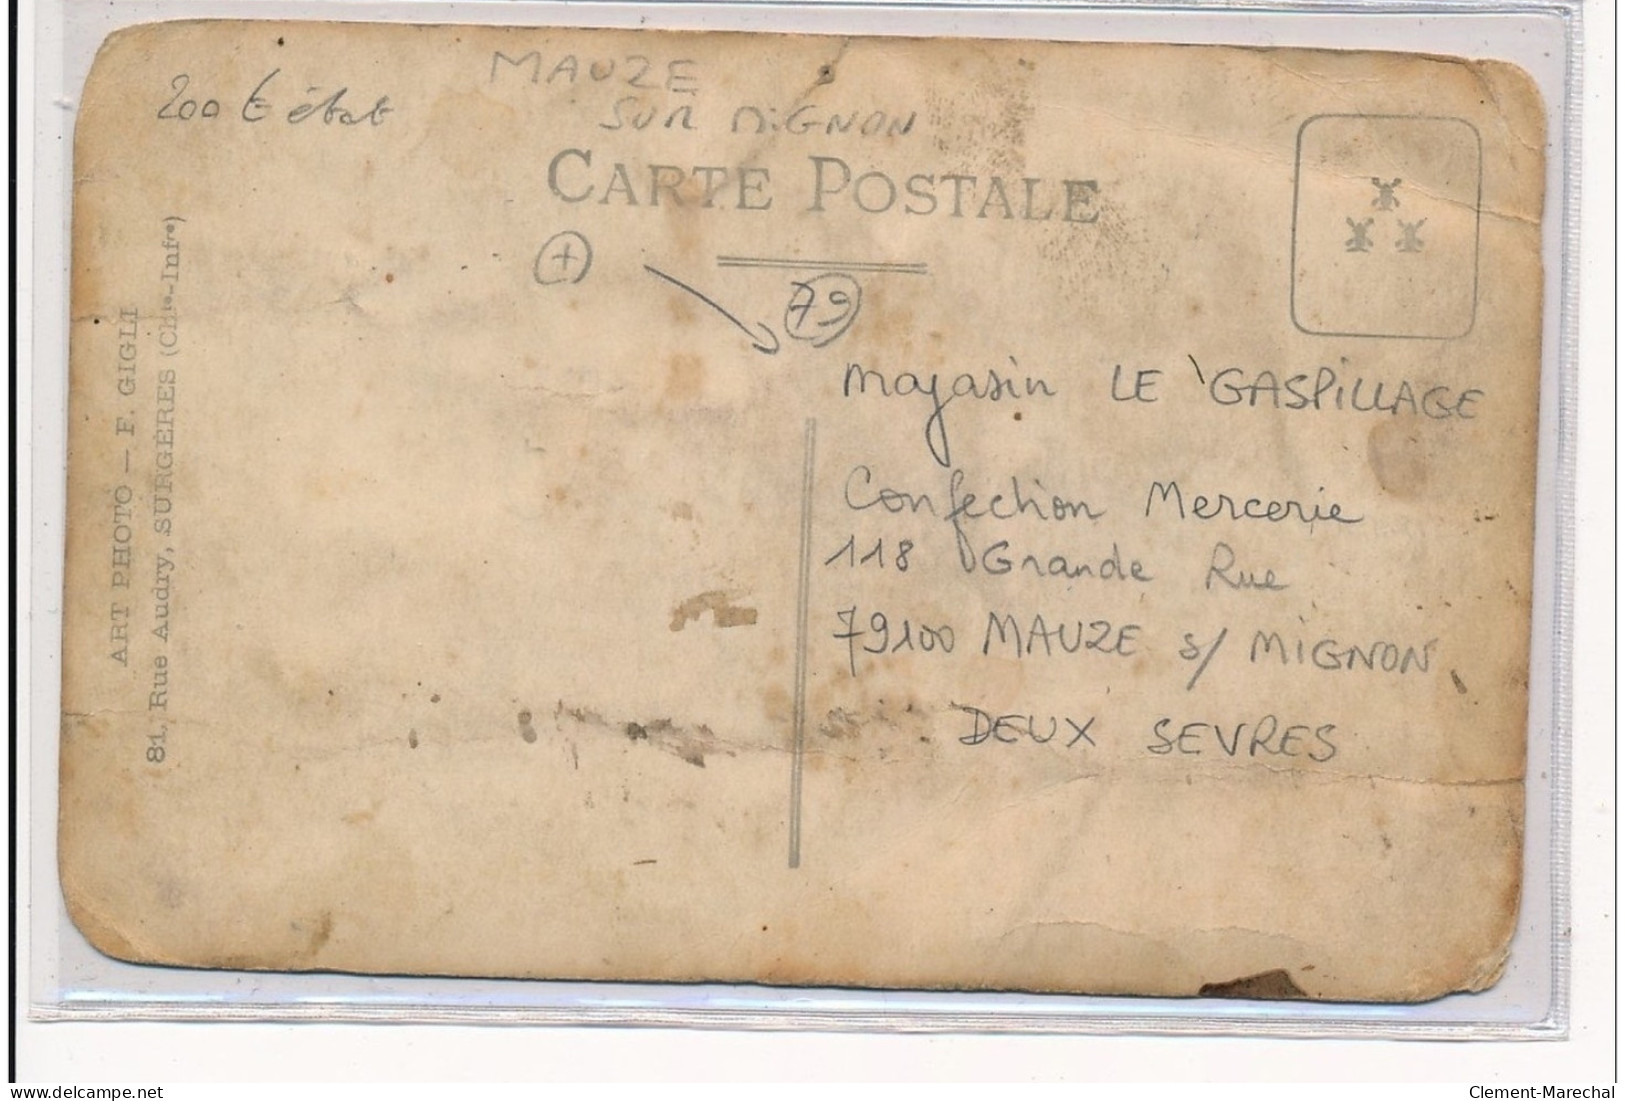 MAUZE
SUR MiGNON
200 € état
CARTE POSTALE
+
79
magasin LE GASPILLAGE
Confection Mercerie
118 Grande Rue
79100 MAUZE s/ MIGNON
DEUX SEVRES
ART PHOTO — F. GIGLI
81, Rue Audry, SURGÈRES (Chte-Infre)
delcampe.net
Clement-Marechal